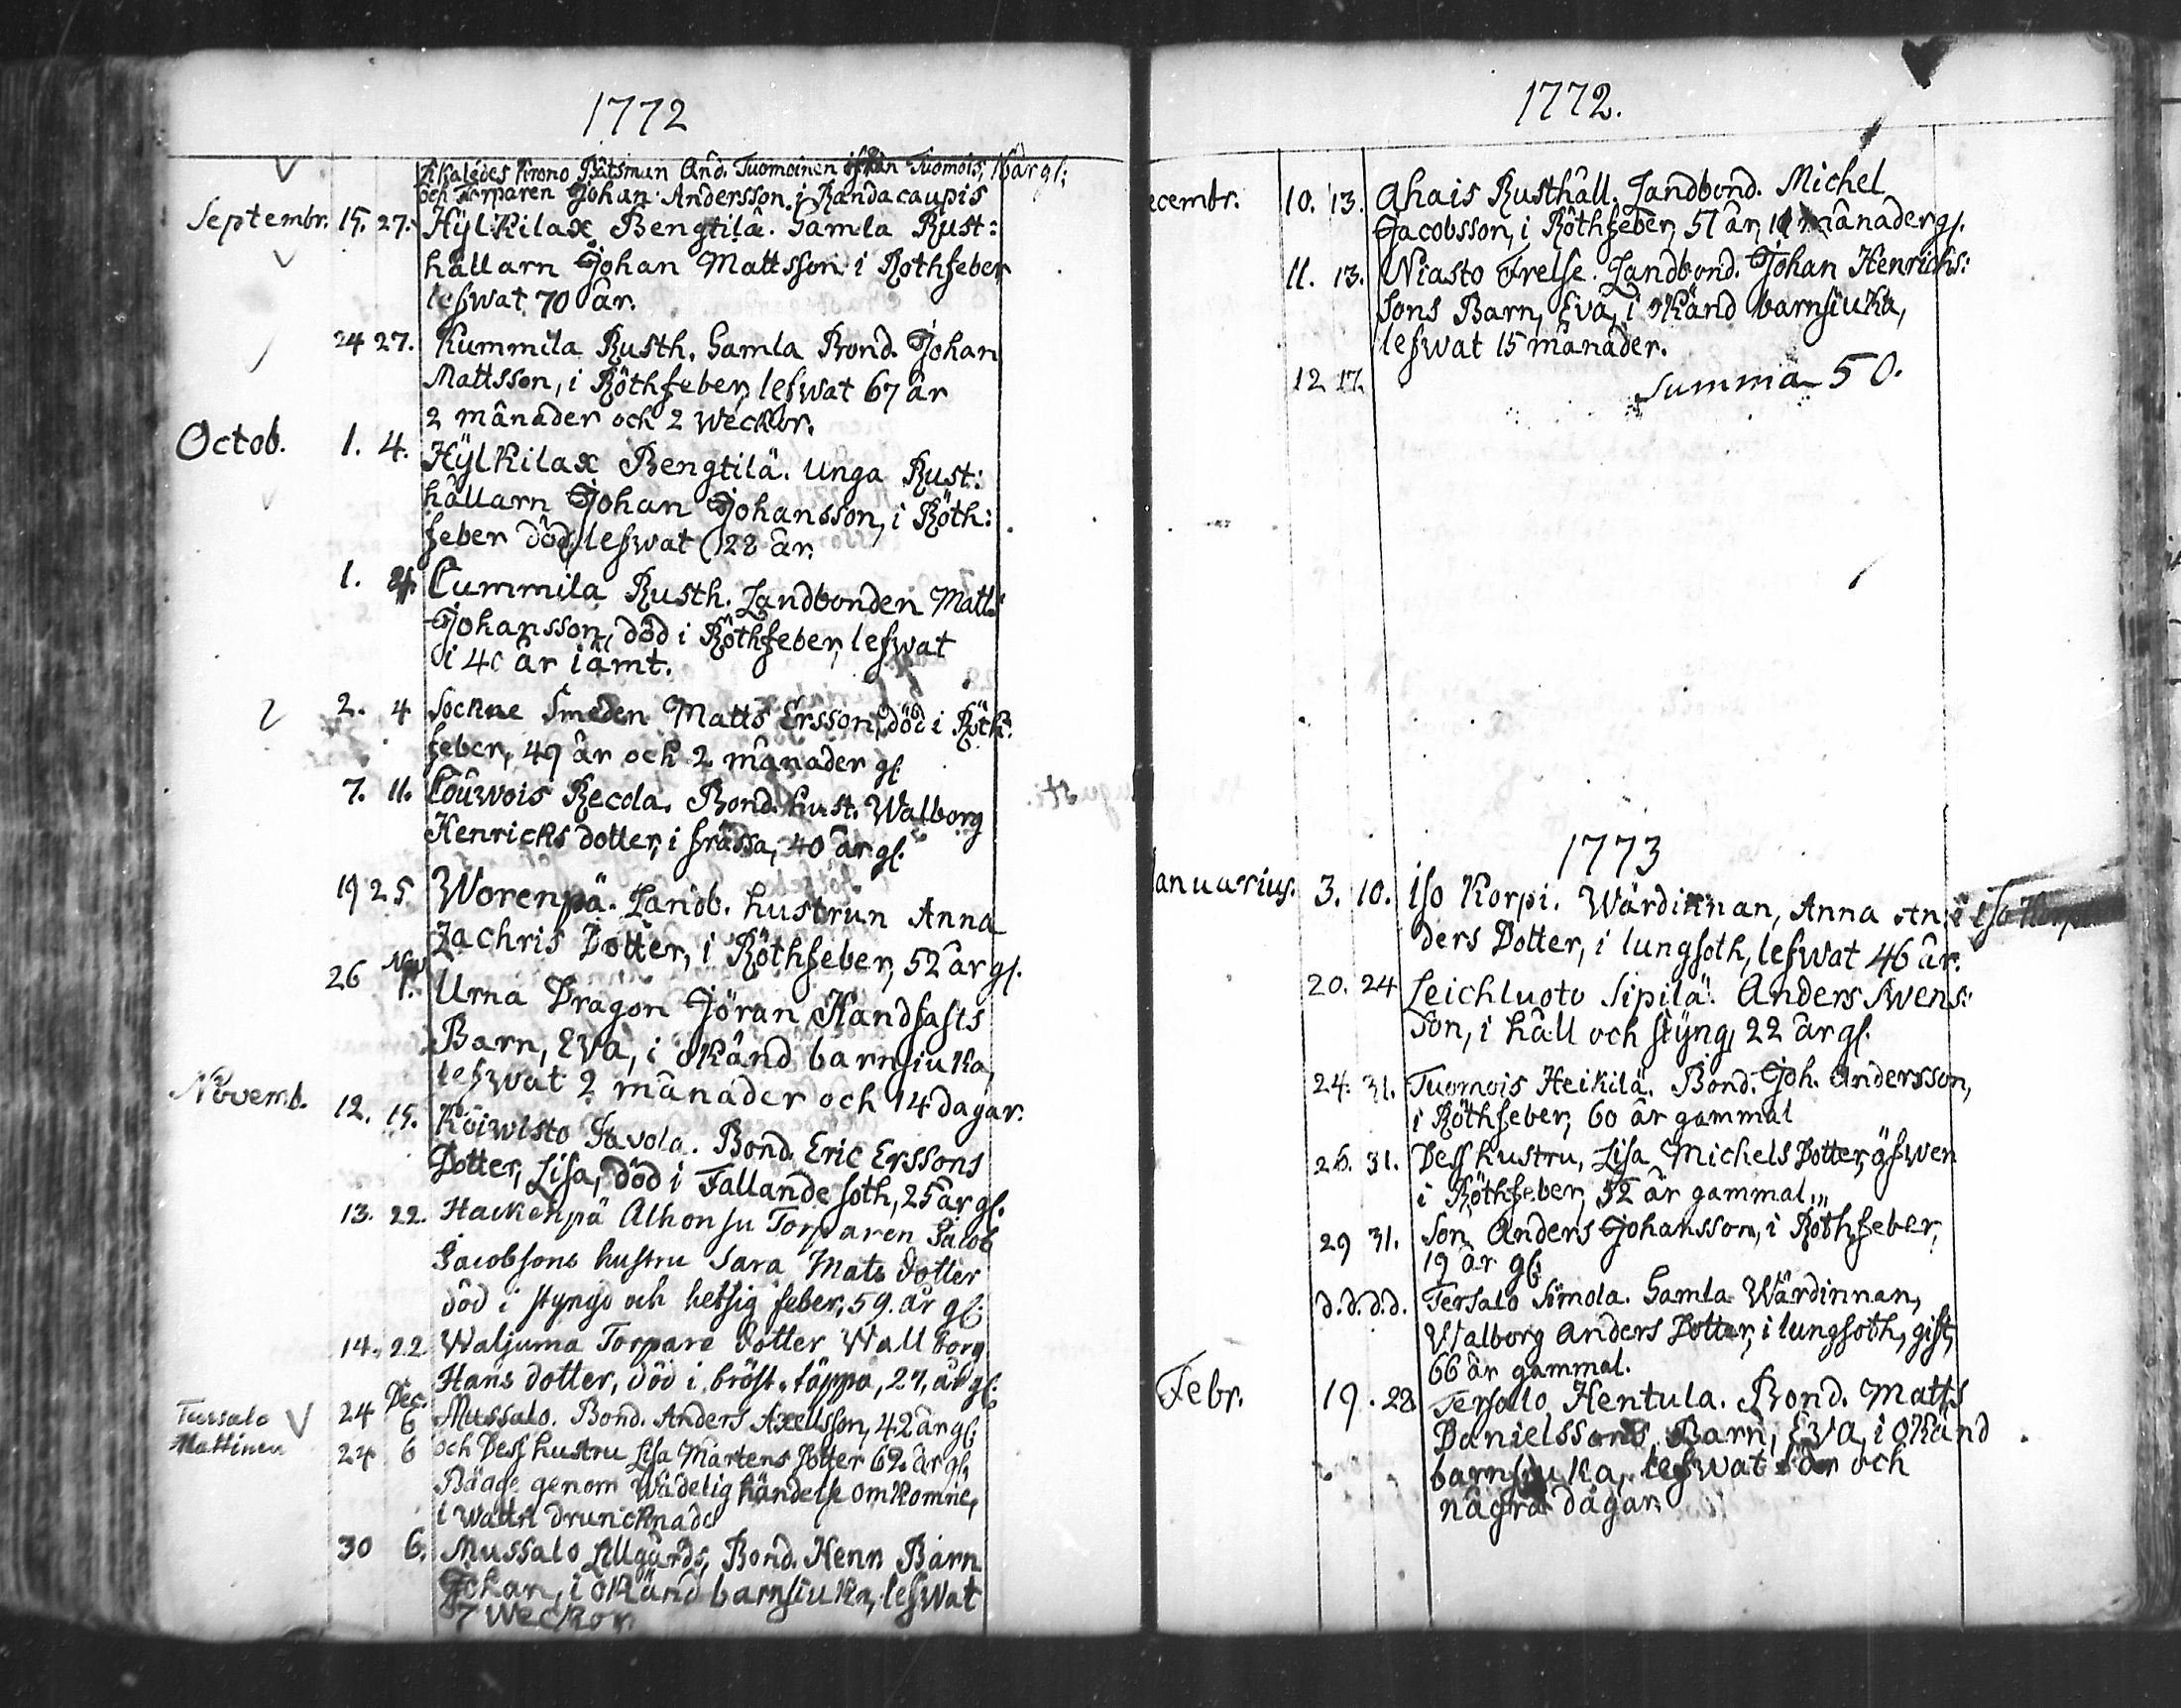 1772
Likaledes Krono Båtsman And. Tuomoinen ifrån Tuomois, 16 år gl:
och Torparen Johan Andersson i Randacaupis
Septembr. 15. 27. Hÿlkilax Bengtilä. Gamla Rust:
hållarn Johan Mattsson i Rothfeber
lefwat 70 år.
24 27. Kummila Rusth. Gamla Bond. Johan
Mattsson, i Röthfeber, lefwat 67 år
2 månader och 2 weckor.
Octob. 1. 4. Hÿlkilax Bengtilä. Unga Rust:
hållarn Johan Johansson, i Röth:
feber död, lefwat 28 år.
1. 4. Cummila Rusth. Landbonden Matts
Johansson, död i Röthfeber, lefwat
i 40 år iämt.
2. 4 Sockne Smeden Matts Ersson, död i Röth:
feber, 49 år och 2 månader gl.
7. 11. Couwois Recola. Bond. hust. Walborg
Henricks dotter, i frässa, 40 år gl.
19 25 Worenpä. Landb. hustrun Anna
Zachris Dotter, i Röthfeber, 52 år gl.
26 Nov. 1. Urna Dragon Jöran Handfasts
Barn, Eva, i okänd barnsiuka,
lefwat 2 månader och 14 dagar.
Novemb. 12. 15. Koiwisto Pavola. Bond. Eric Erssons
Dotter, Lisa, död i Fallande soth, 25 år gl.
13. 22. Hackenpä Alhonsu Torparen Jacob
Jacobsons hustru Sara Mats dotter
död i styng och hetsig feber, 59. år gl:
14. 22 Waljuma Torpare dotter Wallborg
Hans dotter, död i bröst-täppa, 27, år gl:
Tursalo
Mattinen
24 Dec. 6 Mussalo. Bond. Anders Axellsson, 42 år gl:
24 6 och Dess hustru Lisa Mårtens Dotter 62 år gl,
Bägge genom wådelig händelse omkomne,
i wattn drunknade
30 6. Mussalo Lillgårds, Bond. Henr. Barn
Johan, i okänd barnsiuka, lefwat
7 weckor
1772.
ecembr. 10. 13. Ahais Rusthåll. Landbond. Michel
Jacobsson, i Röthfeber, 57 år, 11 månader gl.
11. 13. Niasto Frelse. Landbond. Johan Henrichs:
sons Barn, Eva, i okänd barnsiuka,
lefwat 15 månader.
12 17. Summa 50.
1773
anuarius. 3. 10. Iso Korpi. Wärdinnan, Anna An: i iso Korpi
ders Dotter, i lungsoth, lefwat 46 år.
20. 24 Leichluoto Sipilä. Anders Swens:
son, i håll och styng, 22 år gl.
24. 31. Tuomois Heikilä. Bond. Joh. Andersson,
i Röthfeber, 60 år gammal
26. 31. Dess hustru, Lisa Michels Dotter, äfwen
i Röthfeber, 52 år gammal.
29 31. Son Anders Johansson, i Röthfeber,
19 år gl:
d.d. d.d. Tersalo Simola. Gamla Wärdinnan,
Walborg Anders Dotter, i lungsoth, gift,
66 år gammal.
Febr. 19. 28 Tersalo Hentula. Bond. Matts
Danielssons Barn, Eva, i okänd
barnsiuka, lefwat år och
några dagar.